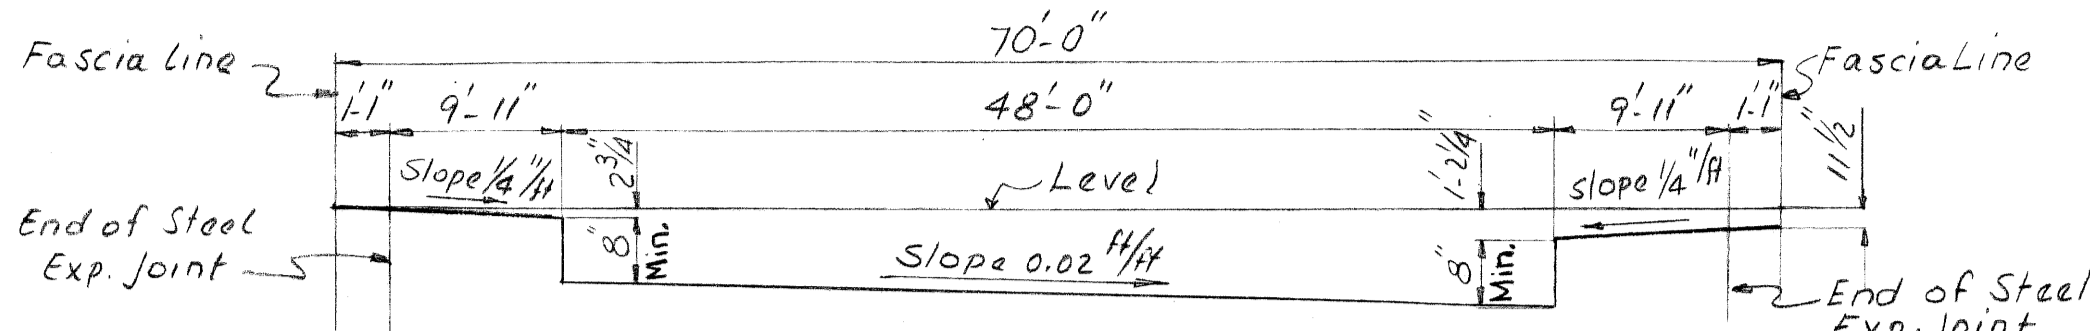 70'-0"
Fascia line
Fascia Line
1'-1"
9'-11"
48'-0"
9'-11"
1'-1"
11 1/2"
Slope 1/4"/ft
2 3/4"
Level
1'-2 1/4"
slope 1/4"/ft
End of Steel
Exp. Joint
8" Min.
Slope 0.02 ft/ft
8" Min.
End of Steel
Exp. Joint